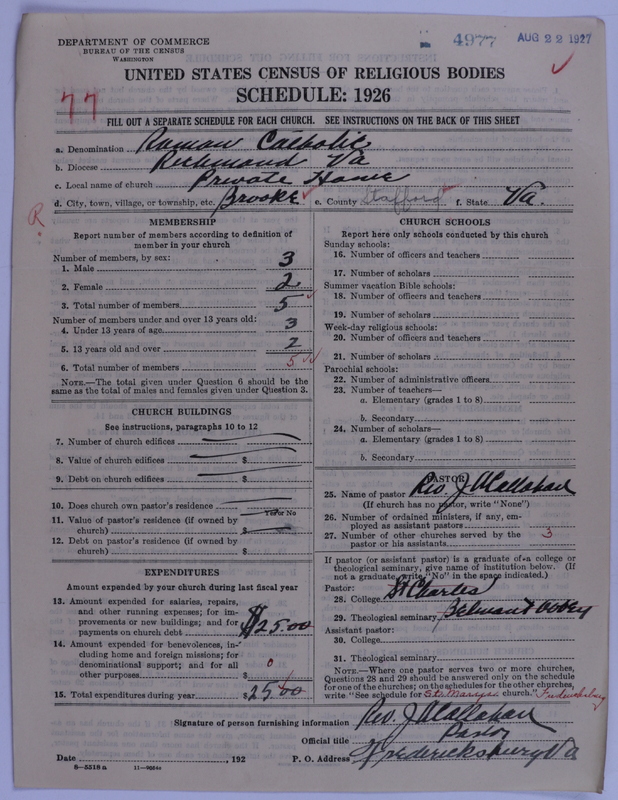 DEPARTMENT OF COMMERCE
BUREAU OF THE CENSUS
WASHINGTON
4977
AUG 22 1927
UNITED STATES CENSUS OF RELIGIOUS BODIES
SCHEDULE: 1926
77
FILL OUT A SEPARATE SCHEDULE FOR EACH CHURCH. SEE INSTRUCTIONS ON THE BACK OF THIS SHEET
a. Denomination Roman Catholic
b. Diocese Richmond Va
c. Local name of church Private Home
d. City, town, village, or township, etc. Brooke e. County Stafford f. State Va.
R
MEMBERSHIP
Report number of members according to definition of
member in your church
Number of members, by sex:
1. Male 3
2. Female 2
3. Total number of members 5
Number of members under and over 13 years old:
4. Under 13 years of age 3
5. 13 years old and over 2
6. Total number of members 5
NOTE.—The total given under Question 6 should be the
same as the total of males and females given under Question 3.
CHURCH BUILDINGS
See instructions, paragraphs 10 to 12
7. Number of church edifices
8. Value of church edifices $
9. Debt on church edifices $
10. Does church own pastor's residence
Yes or No
11. Value of pastor's residence (if owned by
church) $
12. Debt on pastor's residence (if owned by
church) $
EXPENDITURES
Amount expended by your church during last fiscal year
13. Amount expended for salaries, repairs,
and other running expenses; for im-
provements or new buildings; and for
payments on church debt $25.00
14. Amount expended for benevolences, in-
cluding home and foreign missions; for
denominational support; and for all
other purposes $ 0
15. Total expenditures during year $25.00
CHURCH SCHOOLS
Report here only schools conducted by this church
Sunday schools:
16. Number of officers and teachers
17. Number of scholars
Summer vacation Bible schools:
18. Number of officers and teachers
19. Number of scholars
Week-day religious schools:
20. Number of officers and teachers
21. Number of scholars
Parochial schools:
22. Number of administrative officers
23. Number of teachers—
a. Elementary (grades 1 to 8)
b. Secondary
24. Number of scholars—
a. Elementary (grades 1 to 8)
b. Secondary
PASTOR
25. Name of pastor Rev. J McCallahan
(If church has no pastor, write "None")
26. Number of ordained ministers, if any, em-
ployed as assistant pastors
27. Number of other churches served by the
pastor or his assistants 3
If pastor (or assistant pastor) is a graduate of a college or
theological seminary, give name of institution below. (If
not a graduate, write "No" in the space indicated.)
Pastor:
28. College St Charles
29. Theological seminary Belmont Abbey
Assistant pastor:
30. College
31. Theological seminary
NOTE.—Where one pastor serves two or more churches,
Questions 28 and 29 should be answered only on the schedule
for one of the churches; on the schedules for the other churches,
write "See schedule for St. Marys church." Fredericksburg
Signature of person furnishing information Rev. J McCallahan
Official title Pastor
Date , 192 P. O. Address Fredericksburg Va
8-5518 a